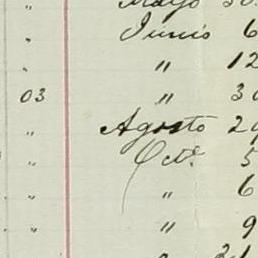 " Mayo 30
" Junio 6
" " 12
03 " 30
" Agosto 29
" Oct.e 5
" " 6
" " 9